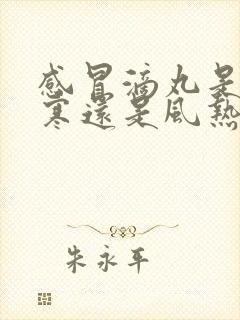 感冒滴丸是
寒還是風熱
朱永平